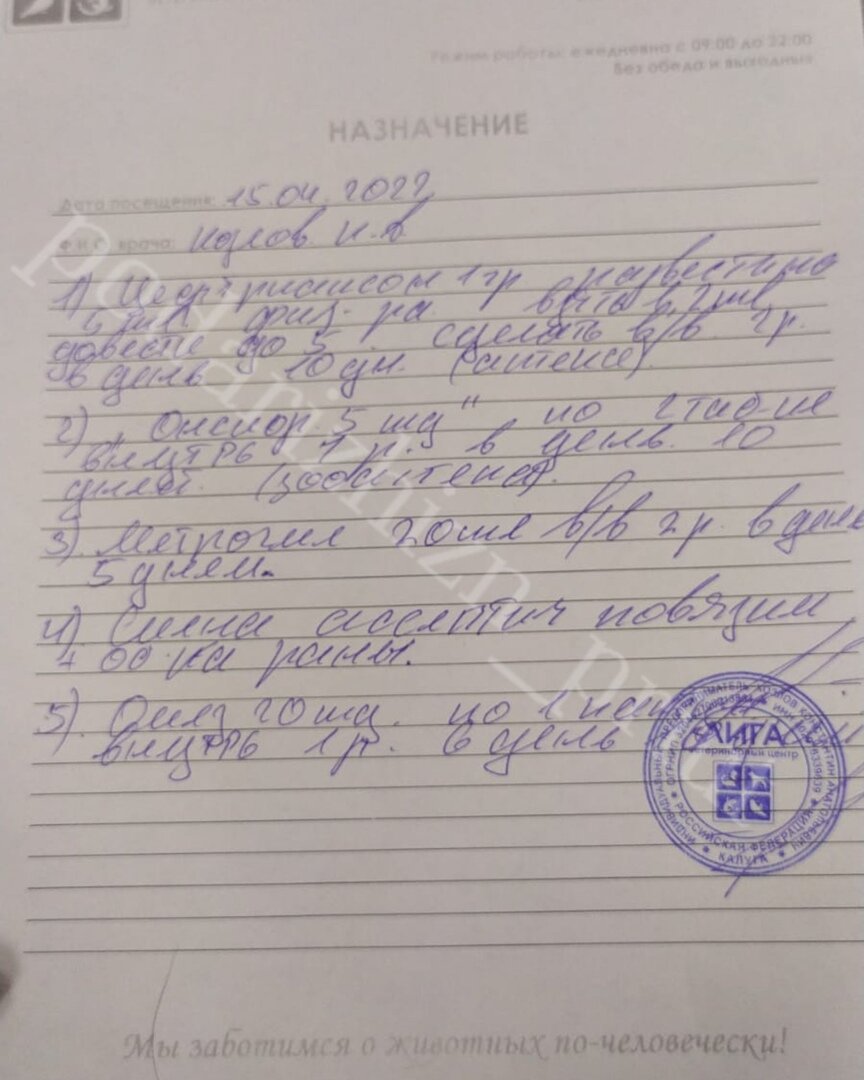 Режим работы: ежедневно с 09:00 до 22:00
Без обеда и выходных
НАЗНАЧЕНИЕ
Дата посещения: 15.04.2022
Ф.И.О. врача:
1) Цефтриаксон 1гр
физ. ра 2мл
довести до 5 сделать в/в 2р.
в день 10 дн. (аптека).
2) "Онсиор 5 мд" по 2 таб-ке
внутрь 1 р. в день 10
дней (зооаптека).
3) Метрогил 20мл в/в 2р. в день
5 дней.
4) Смена повязки
на раны.
5) Омез 20мд. по 1
внутрь 1р. в день
ЛИГА
ветеринарный центр
РОССИЙСКАЯ ФЕДЕРАЦИЯ
КАЛУГА
Мы заботимся о животных по-человечески!